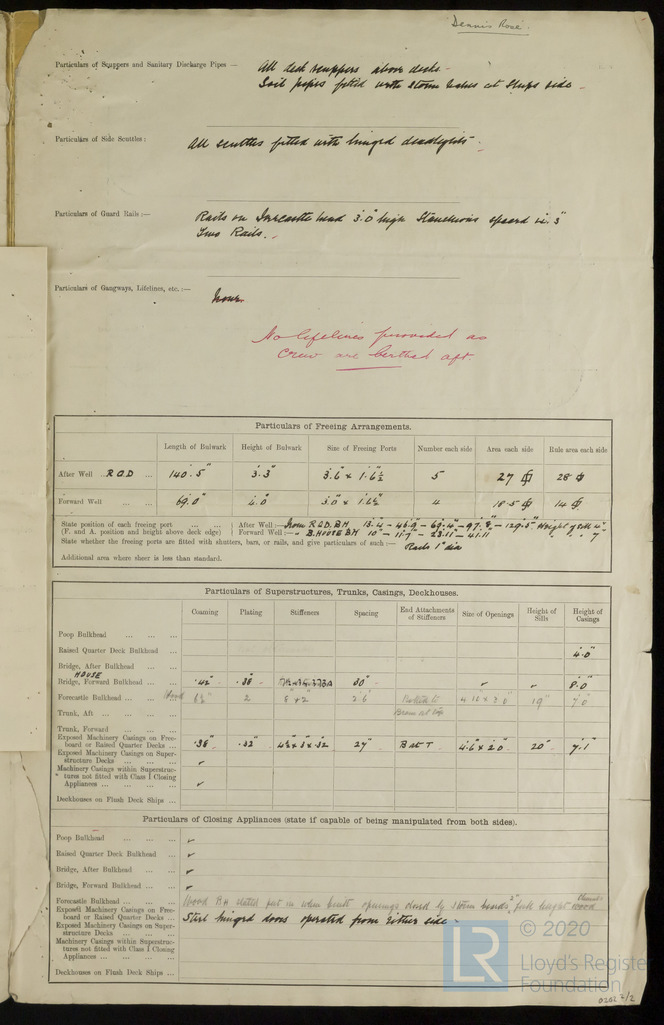 Dennis Rose.
Particulars of Scuppers and Sanitary Discharge Pipes — All deck scuppers above decks -
Soil pipes fitted with storm valves at ships side -
Particulars of Side Scuttles: All scuttles fitted with hinged deadlights -
Particulars of Guard Rails:— Rails on Forecastle head 3'.0" high Stanchions spaced
Two Rails.
Particulars of Gangways, Lifelines, etc.:— None.
No lifelines provided as
crew are berthed aft.
Particulars of Freeing Arrangements.
Length of Bulwark Height of Bulwark Size of Freeing Ports Number each side Area each side Rule area each side
After Well RQD ... 140'.5" 3'.3" 3'.6" x 1'.6½" 5 27 28
Forward Well ... 69'.0" 4'.0" 3'.0" x 1'.6½" 4 18.5 14
State position of each freeing port ... ... After Well:— from RQD. BH 13'.4 - 45.9 - 69.4" - 97.8" - 129.5" Height of Sill 4"
(F. and A. position and height above deck edge) Forward Well:— " B.HOUSE BH 10" - 11.7 - 23.11 - 41.11 " " " 7"
State whether the freeing ports are fitted with shutters, bars, or rails, and give particulars of such:— Rails 1" dia
Additional area where sheer is less than standard.
Particulars of Superstructures, Trunks, Casings, Deckhouses.
Coaming Plating Stiffeners Spacing End Attachments of Stiffeners Size of Openings Height of Sills Height of Casings
Poop Bulkhead ... ... ...
Raised Quarter Deck Bulkhead ... 4'.0"
Bridge, After Bulkhead ... ...
HOUSE
Bridge, Forward Bulkhead ... ... .42" .38" 30" 8'.0"
Forecastle Bulkhead ... ... Wood 6½" 2 8" x 2" 2'.6 19" 7'.0
Trunk, Aft ... ... ...
Trunk, Forward ... ... ...
Exposed Machinery Casings on Free-
board or Raised Quarter Decks ... .38" .32" 4½ x 3 x .32 27" 4'.6 x 2'.0 20" 7'.1"
Exposed Machinery Casings on Super-
structure Decks ... ... ✓
Machinery Casings within Superstruc-
tures not fitted with Class I Closing
Appliances ... ... ... ✓
Deckhouses on Flush Deck Ships ...
Particulars of Closing Appliances (state if capable of being manipulated from both sides).
Poop Bulkhead ... ... ... ✓
Raised Quarter Deck Bulkhead ... ✓
Bridge, After Bulkhead ... ... ✓
Bridge, Forward Bulkhead ... ... ✓
Forecastle Bulkhead ... ... Wood BH stated put in when built openings closed by storm boards 2" full height
Exposed Machinery Casings on Free-
board or Raised Quarter Decks ... Steel hinged doors operated from Either side -
Exposed Machinery Casings on Super-
structure Decks ... ...
Machinery Casings within Superstruc-
tures not fitted with Class I Closing
Appliances ... ... ...
Deckhouses on Flush Deck Ships ...
LR
© 2020
Lloyd's Register
Foundation
0201 2/2